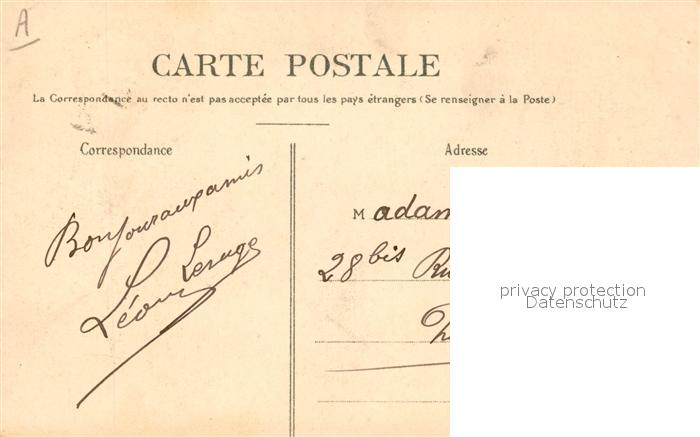 A
CARTE POSTALE
La Correspondance au recto n'est pas acceptée par tous les pays étrangers (Se renseigner à la Poste)
Correspondance
Adresse
Bonjour aux amis
Léon Lesage
Madam
28 bis Ru
privacy protection
Datenschutz